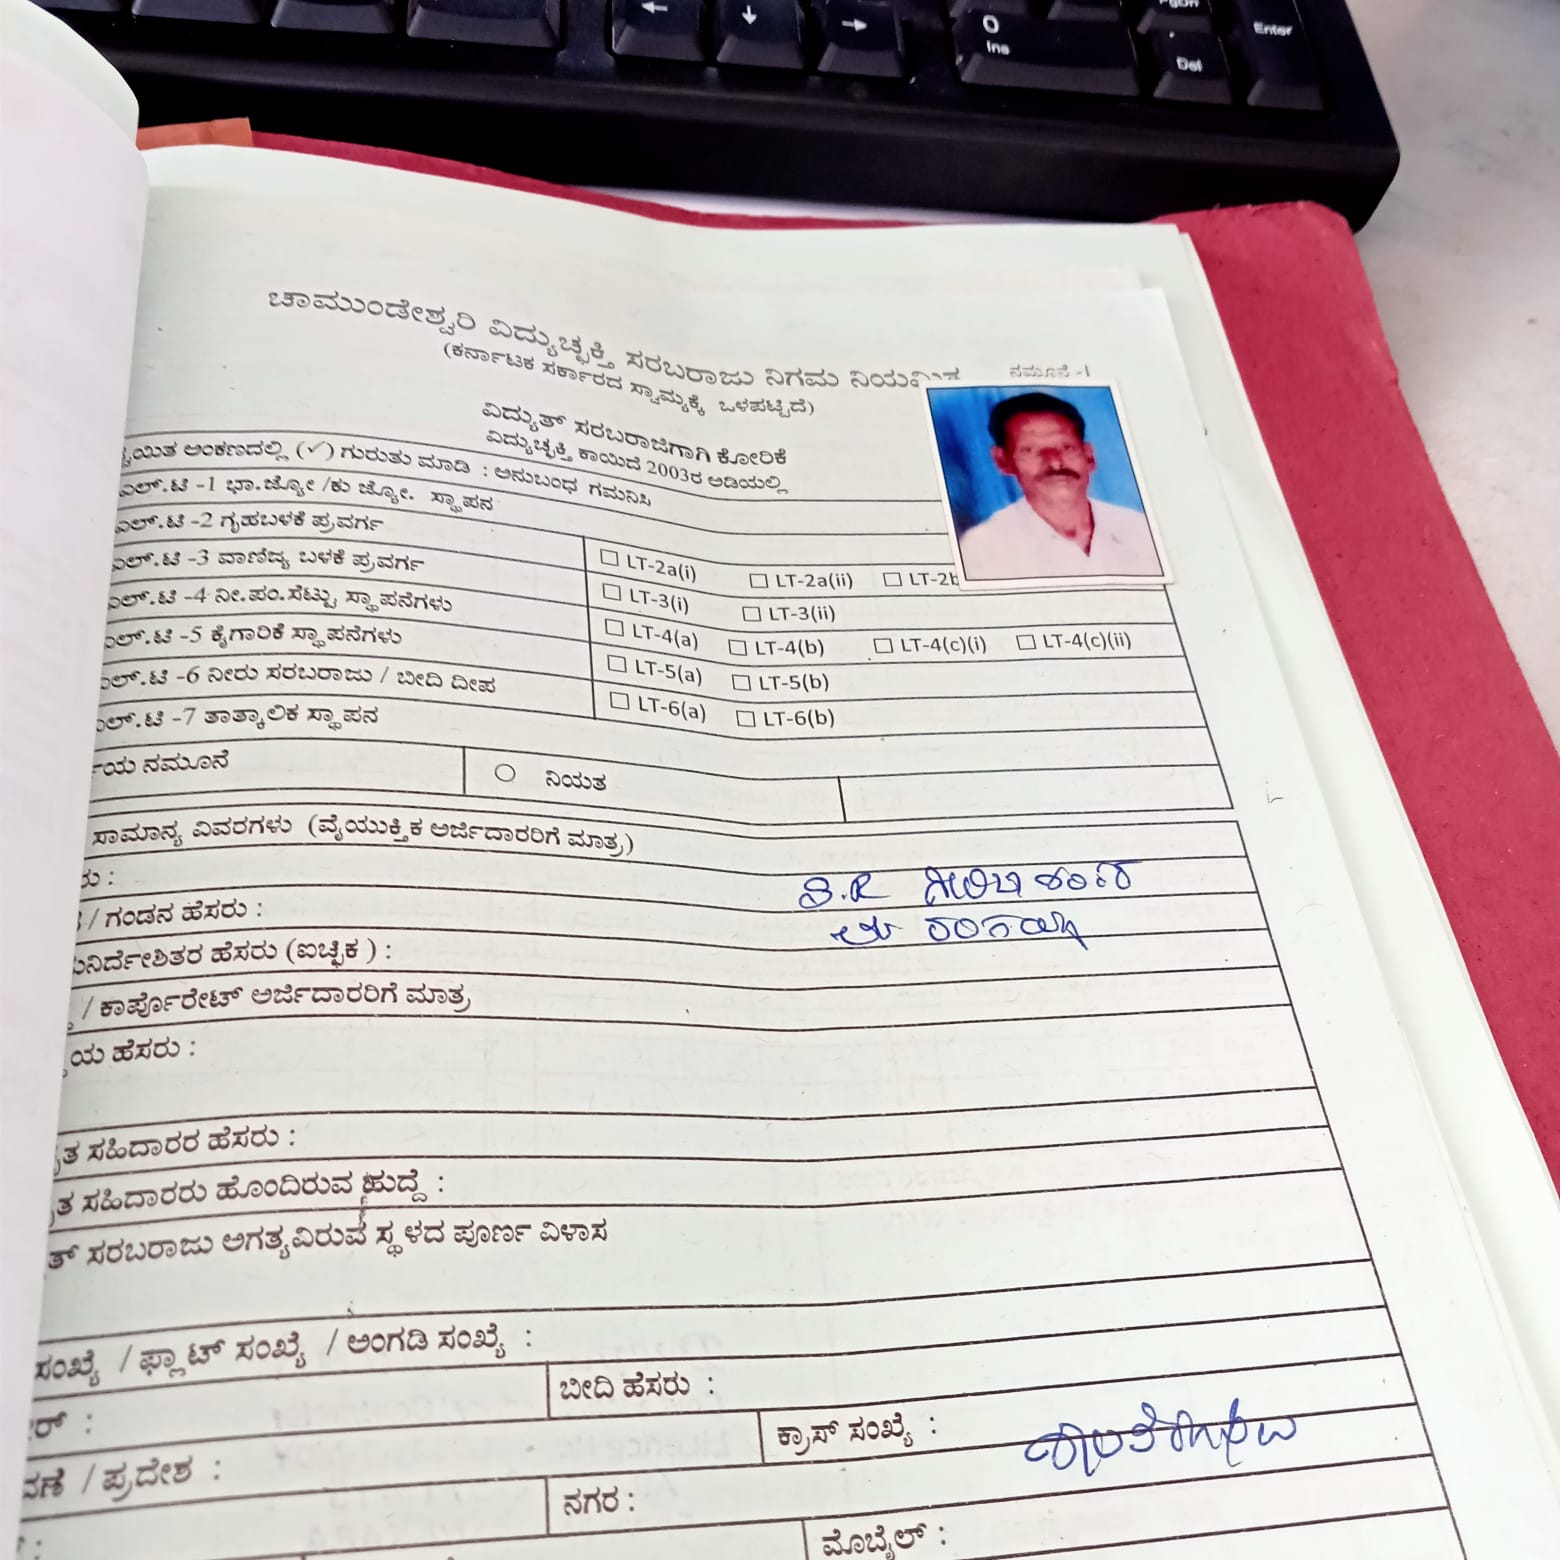 O
Ins
PgDn
Del
Enter
ಚಾಮುಂಡೇಶ್ವರಿ ವಿದ್ಯುಚ್ಛಕ್ತಿ ಸರಬರಾಜು ನಿಗಮ ನಿಯಮಿತ
ನಮೂನೆ -1
(ಕರ್ನಾಟಕ ಸರ್ಕಾರದ ಸ್ವಾಮ್ಯಕ್ಕೆ ಒಳಪಟ್ಟಿದೆ)
ವಿದ್ಯುತ್ ಸರಬರಾಜಿಗಾಗಿ ಕೋರಿಕೆ
ವಿದ್ಯುಚ್ಛಕ್ತಿ ಕಾಯಿದೆ 2003ರ ಅಡಿಯಲ್ಲಿ
ಅಂಕಣದಲ್ಲಿ (✓) ಗುರುತು ಮಾಡಿ : ಅನುಬಂಧ ಗಮನಿಸಿ
ಎಲ್.ಟಿ -1 ಭಾ.ಜ್ಯೋ /ಕು ಜ್ಯೋ. ಸ್ಥಾಪನ
ಎಲ್.ಟಿ -2 ಗೃಹಬಳಕೆ ಪ್ರವರ್ಗ ☐ LT-2a(i) ☐ LT-2a(ii) ☐ LT-2b
ಎಲ್.ಟಿ -3 ವಾಣಿಜ್ಯ ಬಳಕೆ ಪ್ರವರ್ಗ ☐ LT-3(i) ☐ LT-3(ii)
ಎಲ್.ಟಿ -4 ನೀ.ಪಂ.ಸೆಟ್ಟು ಸ್ಥಾಪನೆಗಳು ☐ LT-4(a) ☐ LT-4(b) ☐ LT-4(c)(i) ☐ LT-4(c)(ii)
ಎಲ್.ಟಿ -5 ಕೈಗಾರಿಕೆ ಸ್ಥಾಪನೆಗಳು ☐ LT-5(a) ☐ LT-5(b)
ಎಲ್.ಟಿ -6 ನೀರು ಸರಬರಾಜು / ಬೀದಿ ದೀಪ ☐ LT-6(a) ☐ LT-6(b)
ಎಲ್.ಟಿ -7 ತಾತ್ಕಾಲಿಕ ಸ್ಥಾಪನ
ನಮೂನೆ ○ ನಿಯತ
ಸಾಮಾನ್ಯ ವಿವರಗಳು (ವೈಯುಕ್ತಿಕ ಅರ್ಜಿದಾರರಿಗೆ ಮಾತ್ರ)
ರು :
/ ಗಂಡನ ಹೆಸರು :
ನಿರ್ದೇಶಿತರ ಹೆಸರು (ಐಚ್ಛಿಕ) :
/ ಕಾರ್ಪೊರೇಟ್ ಅರ್ಜಿದಾರರಿಗೆ ಮಾತ್ರ
ಯ ಹೆಸರು :
ತ ಸಹಿದಾರರ ಹೆಸರು :
ತ ಸಹಿದಾರರು ಹೊಂದಿರುವ ಹುದ್ದೆ :
ತ್ ಸರಬರಾಜು ಅಗತ್ಯವಿರುವ ಸ್ಥಳದ ಪೂರ್ಣ ವಿಳಾಸ
ಸಂಖ್ಯೆ / ಫ್ಲಾಟ್ ಸಂಖ್ಯೆ / ಅಂಗಡಿ ಸಂಖ್ಯೆ :
ಬೀದಿ ಹೆಸರು :
ಕ್ರಾಸ್ ಸಂಖ್ಯೆ :
/ ಪ್ರದೇಶ :
ನಗರ :
ಮೊಬೈಲ್ :